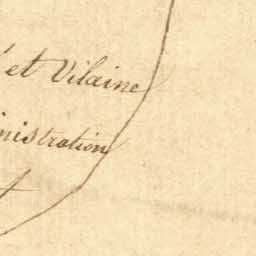 et Vilaine
inistration